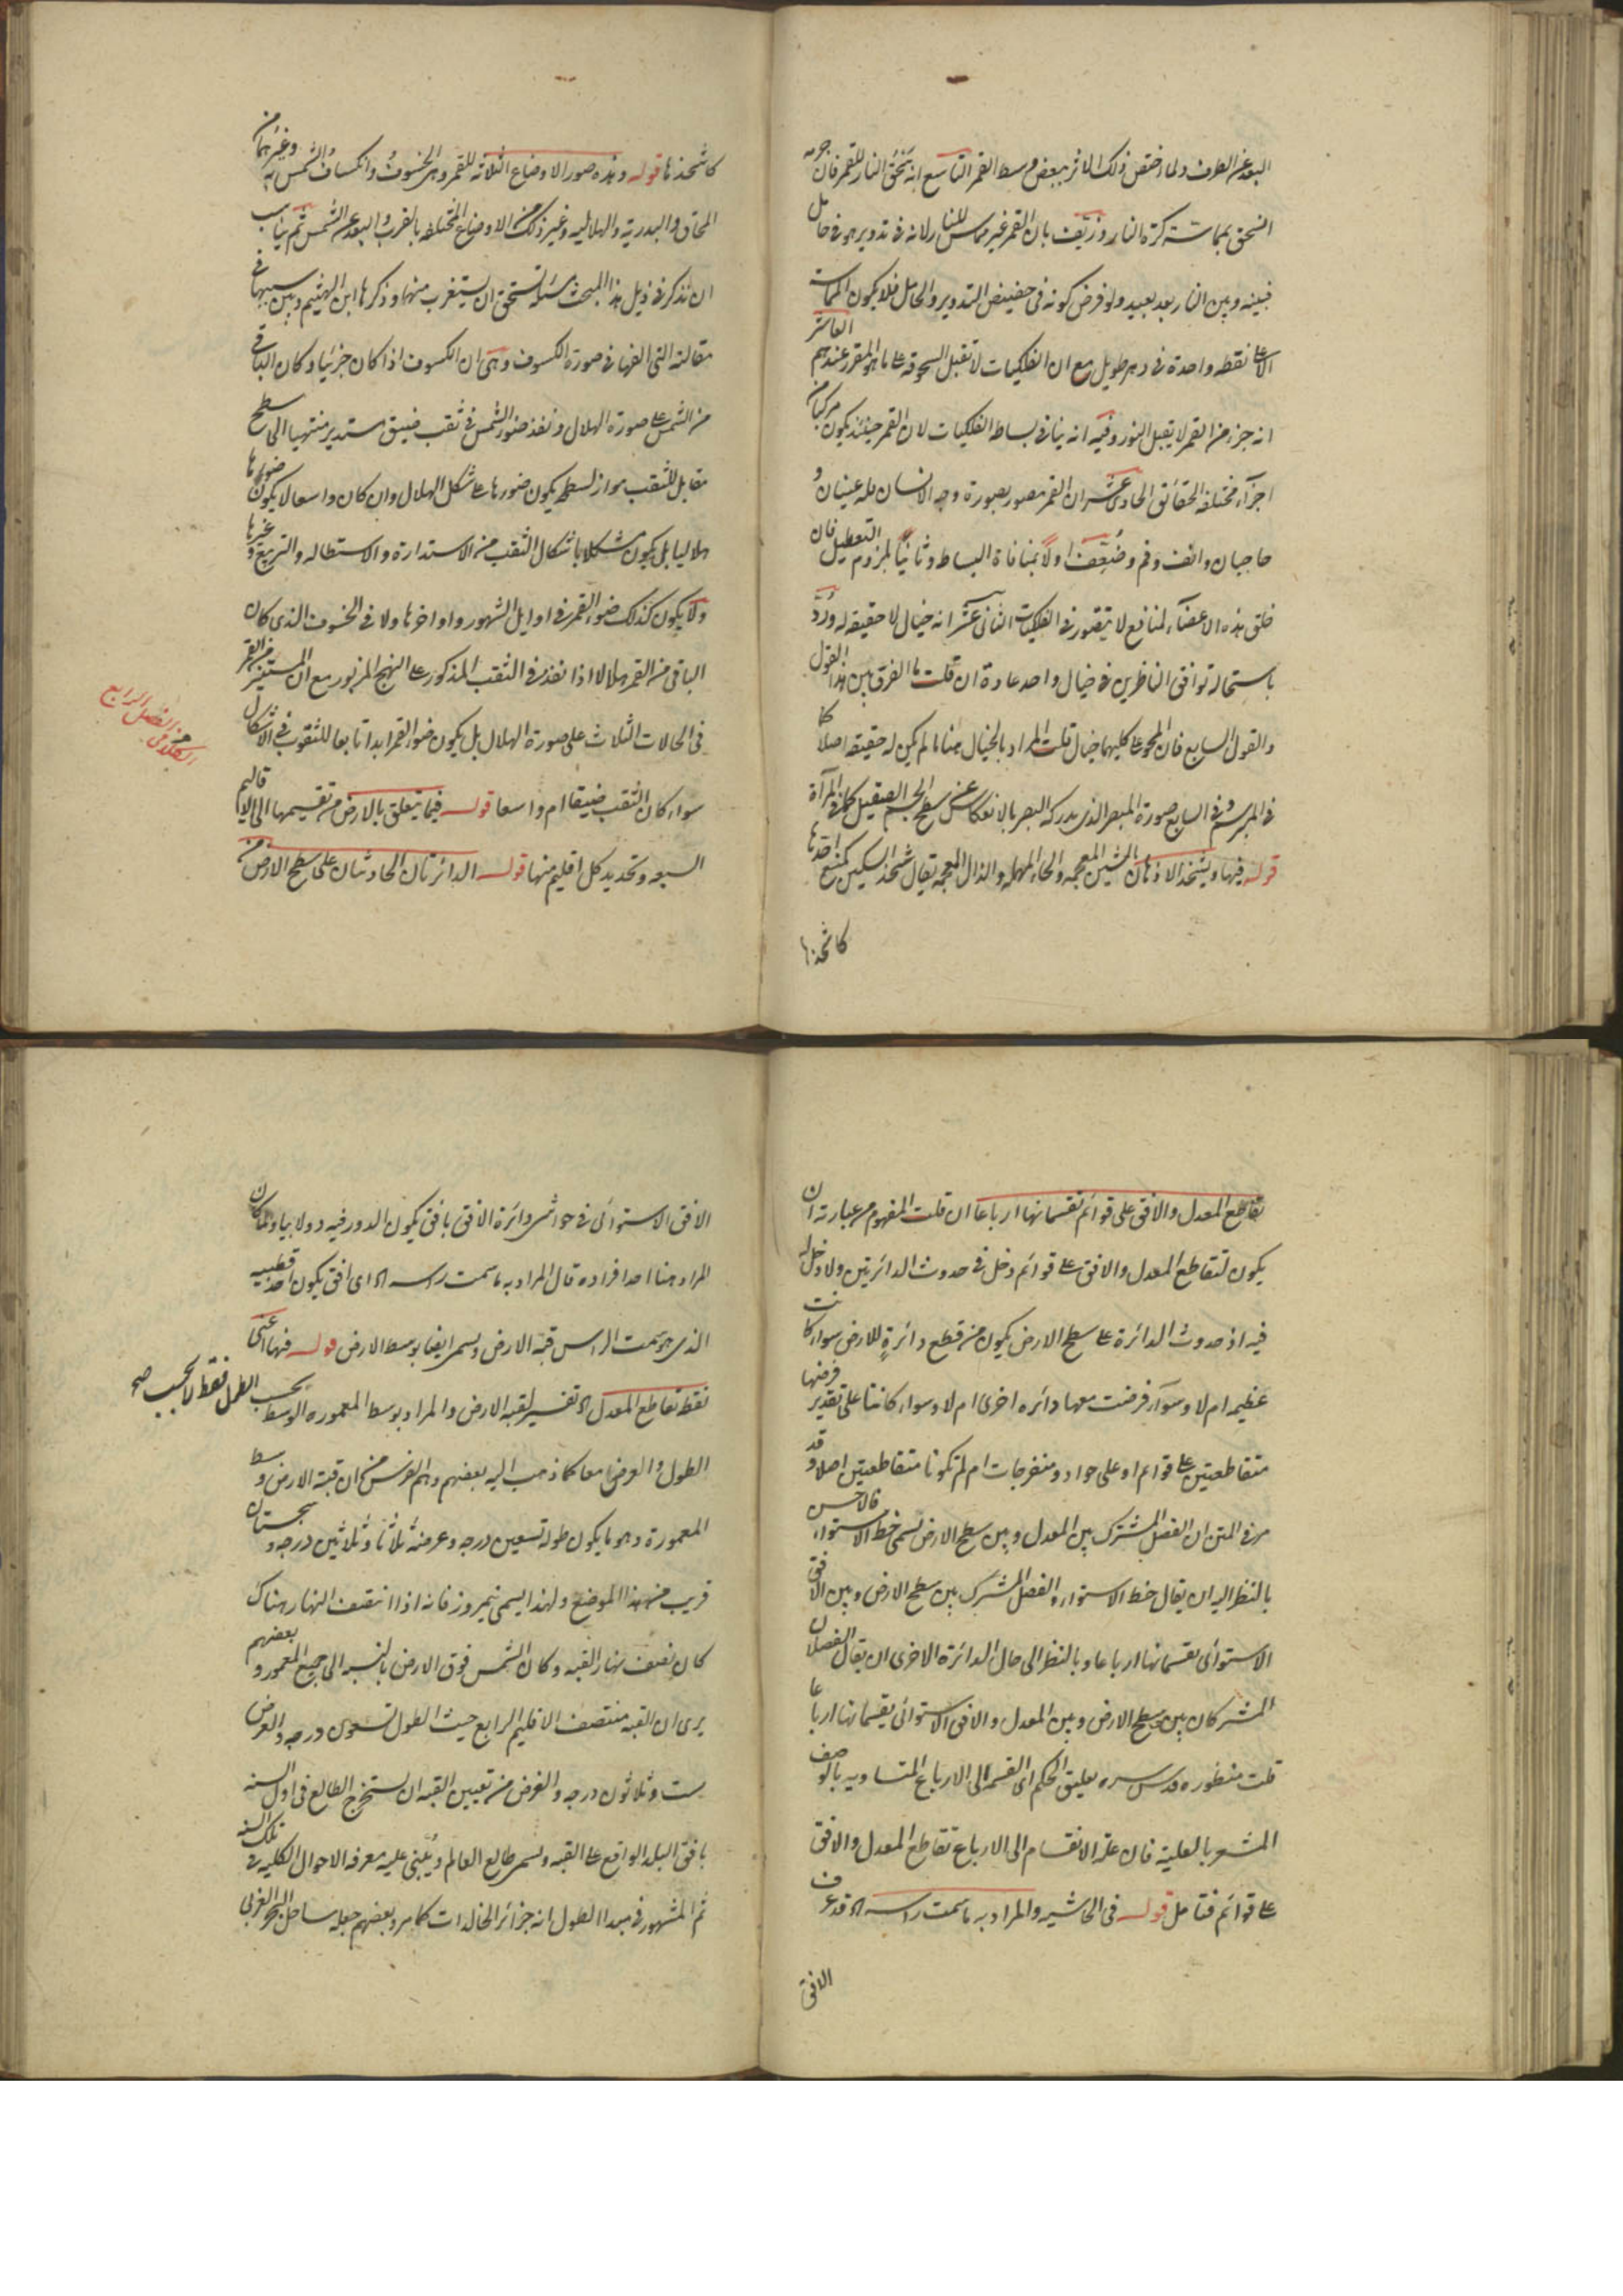 البعد عن الطرف ولما اختص ذلك التاثر ببعض وسط القمر التاسع انه تحق النار للقمر فان جرمه
انسحق بمماسته كرة النار وزيف بان القمر غير مماس للنار لانه فى تدوير هو فى حامل
فبينه وبين النار بعد بعيد ولو فرض كونه فى حضيض التدوير والحامل فلا يكون المماسات
الا على نقطه واحدة فى دهر طويل مع ان الفلكيات لا تقبل السحوقه على ما هو المقرر عندهم العاشر
انه جزء من القمر لا يقبل النور وفيه انه ينافى بساطه الفلكيات لان القمر حينئذ يكون مركبا من
اجزآء مختلفه الحقائق الحادى عشر ان القمر مصور بصورة وجه الانسان فله عينان و
حاجبان وانف وفم وضعف اولا بمنافاة البساطه وثانيا بلزوم التعطيل فان
خلق هذه الاعضآء لمنافع لا تتصور فى الفلكيات الثانى عشر انه خيال لا حقيقه له ورد
باستحاله توافق الناظرين فى خيال واحد عادة ان قلت ما الفرق بين هذا القول
والقول السابع فان المحو على كليهما خيال قلت المراد بالخيال هنا ما لم يكن له حقيقه اصلا كما
فى المبرسم وفى السابع صورة المبصر الذى يدركه البصر بالانعكاس عن سطح الجسم الصقيل كما فى المرآة
قوله فيها ويشحذ الاذهان بالشين المعجمه والحاء المهمله والذال المعجمه يقال شحذ السكين كمنع احدها
كاشحذها
كاشحذها قوله وهذه صور الاوضاع الثلاثه للقمر وهى الخسوف وانكساف الشمس به وغيرهما من
المحاق والبدريه والهلاليه وغير ذلك من الاوضاع المختلفه بالقرب والبعد عن الشمس ثم يناسب
ان نذكر فى ذيل هذا المبحث مسئله تستحق ان يستغرب منها وذكرها ابن الهيثم وبين سببها فى
مقالته التى الفها فى صورة الكسوف وهى ان الكسوف اذا كان جزئيا وكان الباقى
من الشمس على صورة الهلال ونفذ ضوء الشمس فى ثقب ضيق مستدير منتهيا الى سطح
مقابل للثقب مواز لسطحه يكون ضوءها على شكل الهلال وان كان واسعا لا يكون ضوءها
هلاليا بل يكون مشكلا باشكال الثقب من الاستدارة والاستطاله والتربيع وغيرها
ولا يكون كذلك ضوء القمر فى اوايل الشهور واواخرها ولا فى الخسوف الذى كان
الباقى من القمر هلالا اذا نفذ فى الثقب المذكور على النهج المزبور مع ان المستنير من القمر
فى الحالات الثلاث على صورة الهلال بل يكون ضوء القمر ابدا تابعا للثقوب فى الاشكال
سواء كان الثقب ضيقا ام واسعا قوله فيما يتعلق بالارض من تقسيمها الى الاقاليم
السبعه وتحديد كل اقليم منها قوله الدائرتان الحادثتان على سطح الارض من
الكلام فى الفصل الرابع
تقاطع المعدل والافق على قوائم تقسمانها ارباعا ان قلت المفهوم من عبارته ان
يكون لتقاطع المعدل والافق على قوائم دخل فى حدوث الدائرتين ولا دخل له
فيه اذ حدوث الدائرة على سطح الارض يكون من قطع دائرة للارض سواء كانت
عظيمه ام لا وسوآء فرضت معها دائره اخرى ام لا وسواء كانتا على تقدير فرضها
متقاطعتين على قوائم او على حواد ومنفرجات ام لم تكونا متقاطعتين اصلا وقد
مر فى المتن ان الفصل المشترك بين المعدل وبين سطح الارض تسمى خط الاستواء فالاحسن
بالنظر اليه ان يقال خط الاستواء والفصل المشترك بين سطح الارض وبين الافق
الاستوائى تقسمانها ارباعا وبالنظر الى حال الدائرة الاخرى ان يقال الفصلان
المشتركان بين سطح الارض وبين المعدل والافق الاستوائى يقسمانها ارباعا
قلت منظوره قدس سره تعليق الحكم اى القسمه الى الارباع المتساويه بالوصف
المشعر بالعليه فان علة الانقسام الى الارباع تقاطع المعدل والافق
على قوائم فتامل قوله فى الحاشيه والمراد به ما سمت راسه الخ قد عرف
الافق
الافق الاستوائى فى حواشى دائرة الافق بافق يكون الدور فيه دولابيا ولما كان
المراد هنا احد افراده قال المراد به ما سمت راسه الخ اى افق يكون احد قطبيه
الذى هو سمت الراس قبة الارض ويسمى ايضا بوسط الارض قوله فيها اعنى
نقطة تقاطع المعدل الخ تفسير لقبه الارض والمراد بوسط المعموره الوسط بحسب الطول فقط لا بحسب صح
الطول والعرض معا كما ذهب اليه بعضهم وهم الفرس من ان قبة الارض وسط
المعمورة وهو ما يكون طوله تسعين درجه وعرضه ثلاثا وثلاثين درجه وسجستان
قريب من هذا الموضع ولهذا يسمى نيمروز فانه اذا انتصف النهار هناك
كان نصف نهار القبه وكان الشمس فوق الارض بالنسبه الى جميع المعمور وبعضهم
يرى ان القبه منتصف الاقليم الرابع حيث الطول تسعون درجه والعرض
ست وثلاثون درجه والغرض من تعيين القبه ان يستخرج الطالع فى اول السنه
بافق البلد الواقع على القبه ويسمى طالع العالم ويبنى عليه معرفه الاحوال الكليه فى تلك السنه
ثم المشهور فى مبدا الطول انه جزائر الخالدات كما مر وبعضهم جعله ساحل البحر الغربى